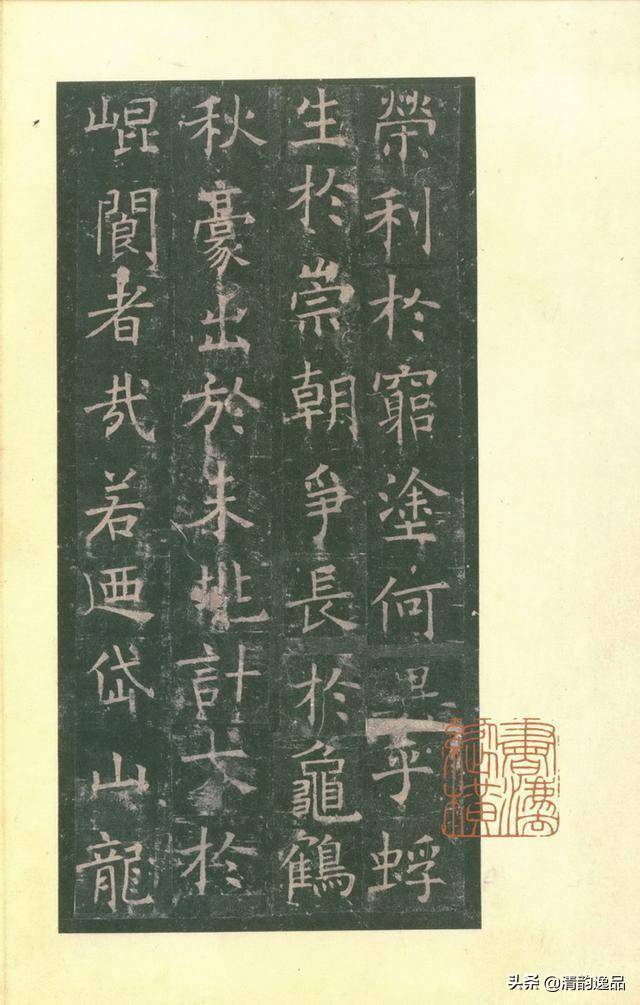 榮利於窮塗何乎蜉
生於崇朝爭長於龜鶴
秋豪出於未計大於
崐閬者哉若迺岱山龍
头条 @清韵逸品